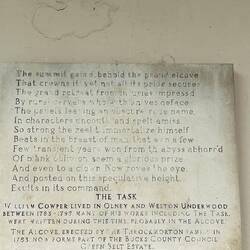 The summit gained, behold the proud alcove
That crowns it! yet not all its pride secures
The grand retreat from injuries impressed
By rural carvers who with knives deface
The panels leaving an obscure rude name
In characters uncouth and spelt amiss
So strong the zeal t'immortalize himself
Beats in the breast of man that e'en a few
Few transient years won from th'abyss abhorr'd
Of blank oblivion seem a glorious prize
And even to a clown. Now roves the eye
And posted on this speculative height
Exults in its command.
THE TASK
WILLIAM COWPER LIVED IN OLNEY AND WESTON UNDERWOOD
BETWEEN 1768-1795. MANY OF HIS WORKS INCLUDING THE TASK,
WERE WRITTEN DURING THIS TIME, PROBABLY IN THE ALCOVE
THE ALCOVE, ERECTED BY THE THROCKMORTON FAMILY IN
1753, NOW FORMS PART OF THE BUCKS COUNTY COUNCIL
GREEN BELT ESTATE.